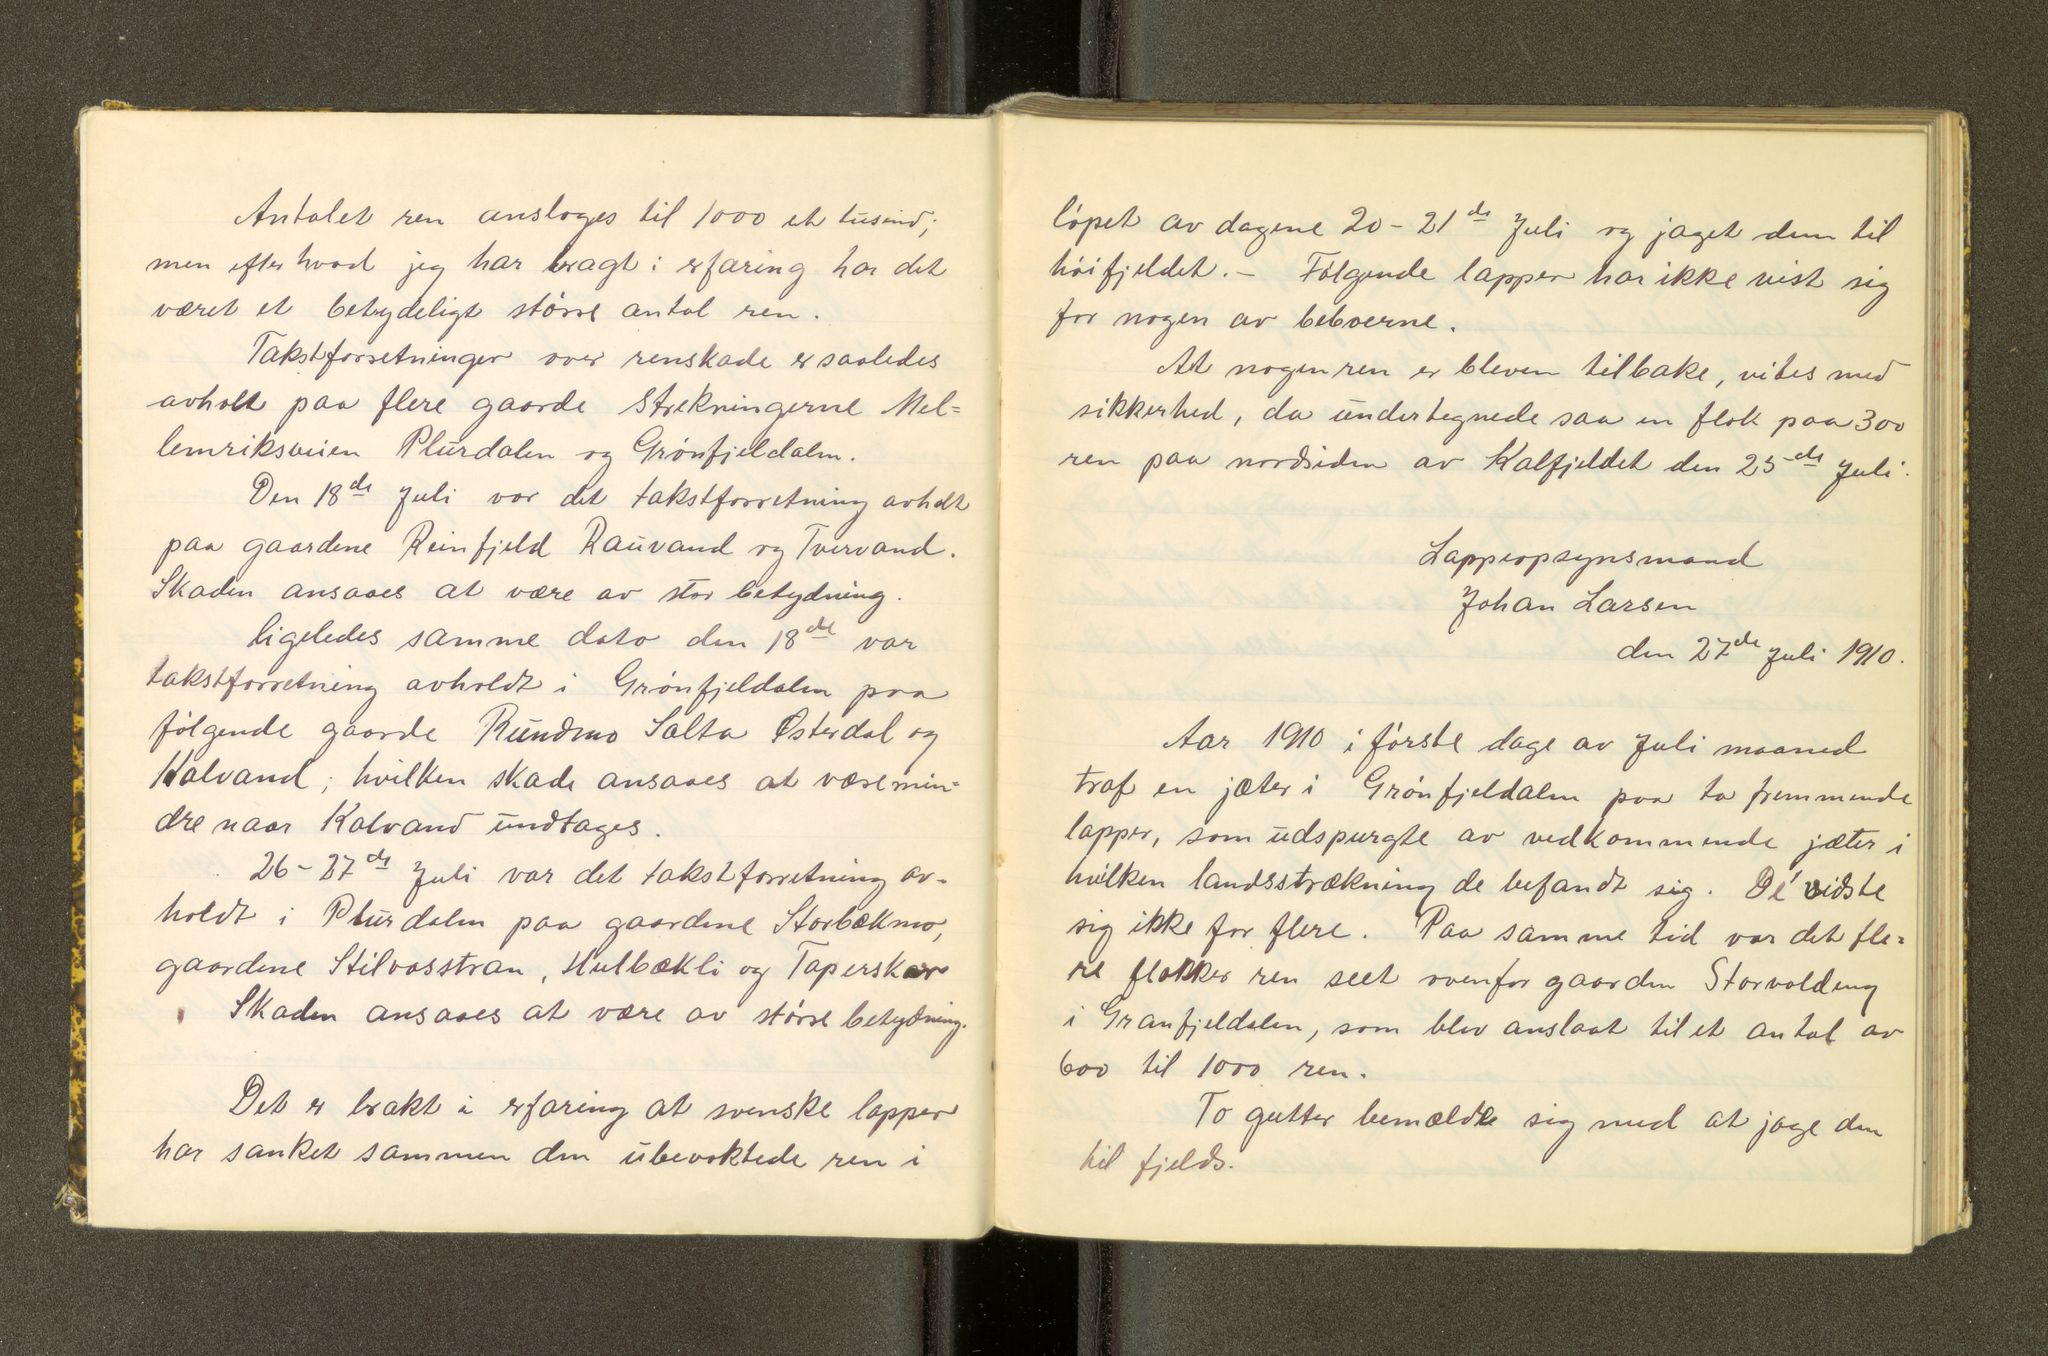 Antalet ren ansloges til 1000 et tusind;
men efter hvad jeg har bragt i erfaring har det
været et betydeligt større antal ren.
Takstforretninger over renskade er saaledes
avholt paa flere gaarde Strekningerne Mel=
lemriksveien Plurdalen og Grønfjeldalen.
Den 18de Juli var det takstforretning avholdt
paa gaardene Reinfjeld Rauvand og Tvervand.
Skaden ansaaes at være av stor betydning.
ligeledes samme dato den 18de var
takstforretning avholdt i Grønfjeldalen paa
følgende gaarde Rundmo Salta Østerdal og
Kalvand; hvilken skade ansaaes at være min=
dre naar Kalvand undtages.
26-27de Juli var det takstforretning av-
holdt i Plurdalen paa gaardene Storbækmo,
gaardene Stilvasstran, Hulbækli og Taperskar
Skaden ansaaes at være av større betydning.
Det er brakt i erfaring at svenske lapper
har sanket sammen den ubevoktede ren i
løpet av dagene 20-21de Juli og jaget dem til
høifjeldet.- Følgende lapper har ikke vist sig
for nogen av beboerne.
At nogen ren er bleven tilbake, vites med
sikkerhed, da undertegnede saa en flok paa 300
ren paa nordsiden av Kalfjeldet den 25de Juli.
Lappeopsynsmand
Johan Larsen
den 27de Juli 1910.
Aar 1910 i første dage av Juli maaned
traf en jæter i Grønfjeldalen paa to fremmende
lapper, som udspurgte av vedkommende jæter i
hvilken landsstrækning de befandt sig. De vidste
sig ikke for flere. Paa samme tid var det fle=
re flokker ren seet ovenfor gaarden Storvoldeng
i Granfjeldalen, som blev anslaat til et antal av
600 til 1000 ren.
To gutter bemældte sig med at jage den
til fjelds.